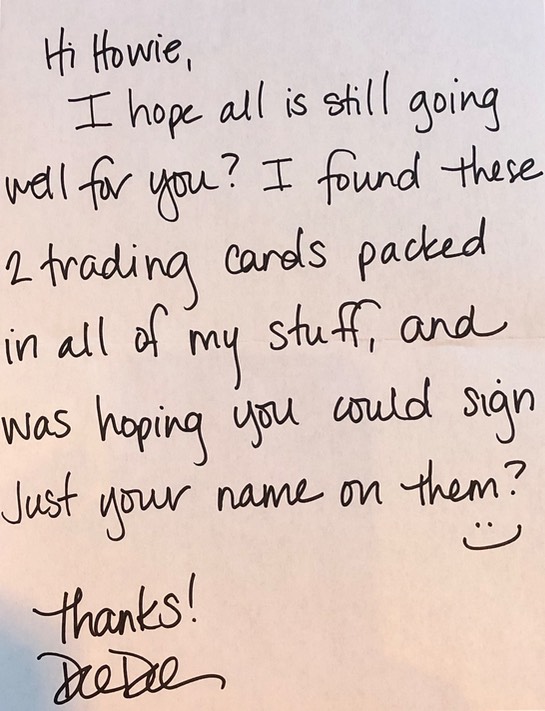 Hi Howie,
I hope all is still going
well for you? I found these
2 trading cards packed
in all of my stuff, and
was hoping you could sign
Just your name on them?
thanks!
DeeDee